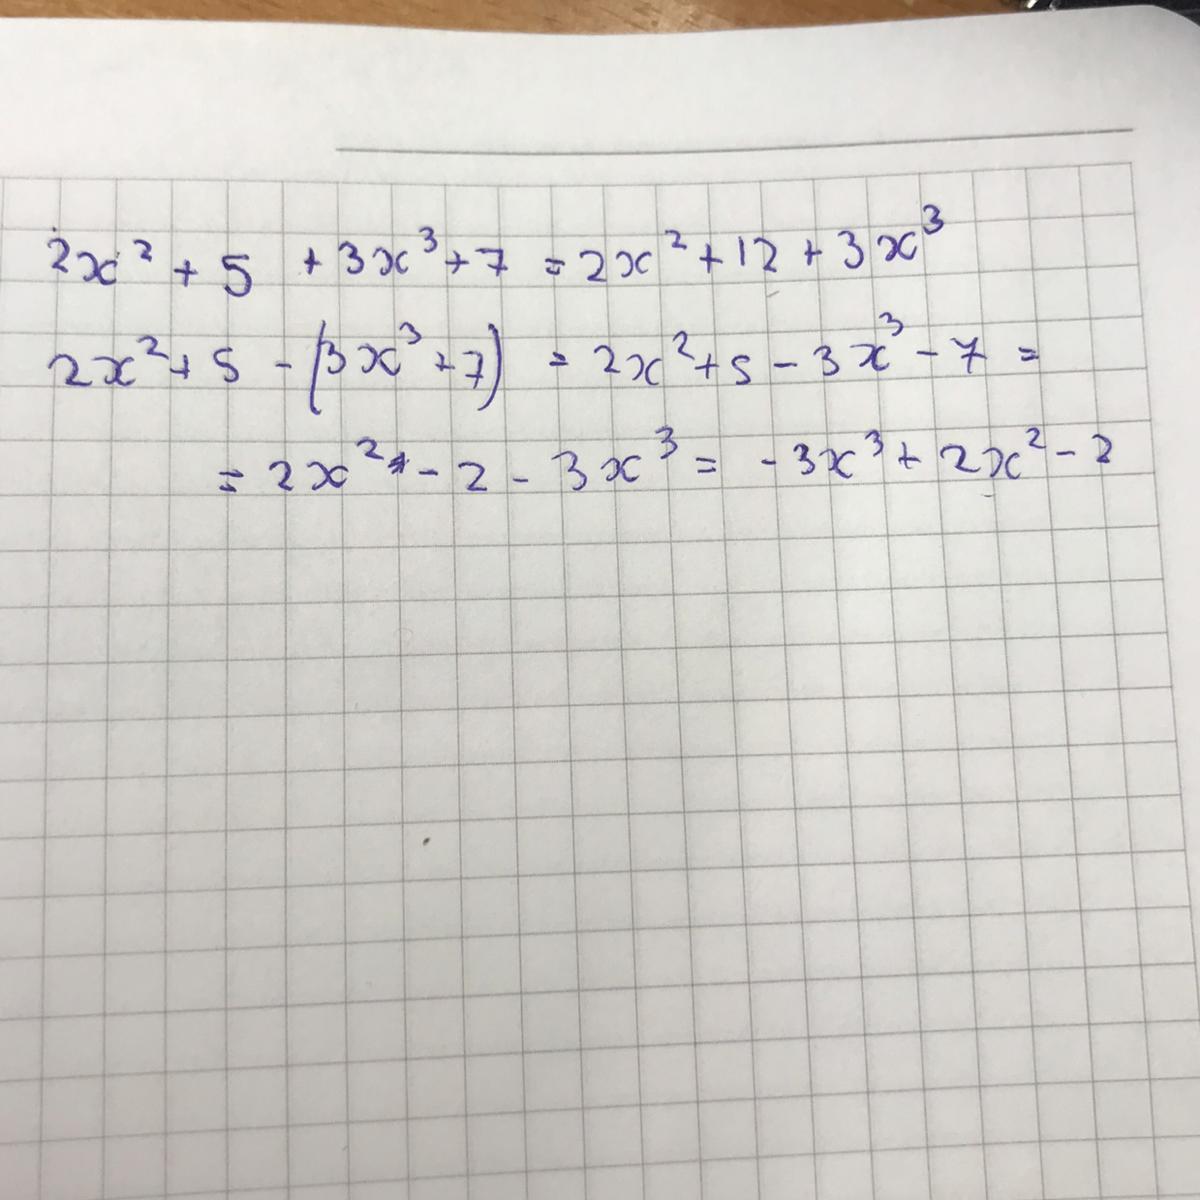 2x² + 5 + 3x³ + 7 = 2x² + 12 + 3x³
2x² + 5 - (3x³ + 7) = 2x² + 5 - 3x³ - 7 =
= 2x² - 2 - 3x³ = -3x³ + 2x² - 2